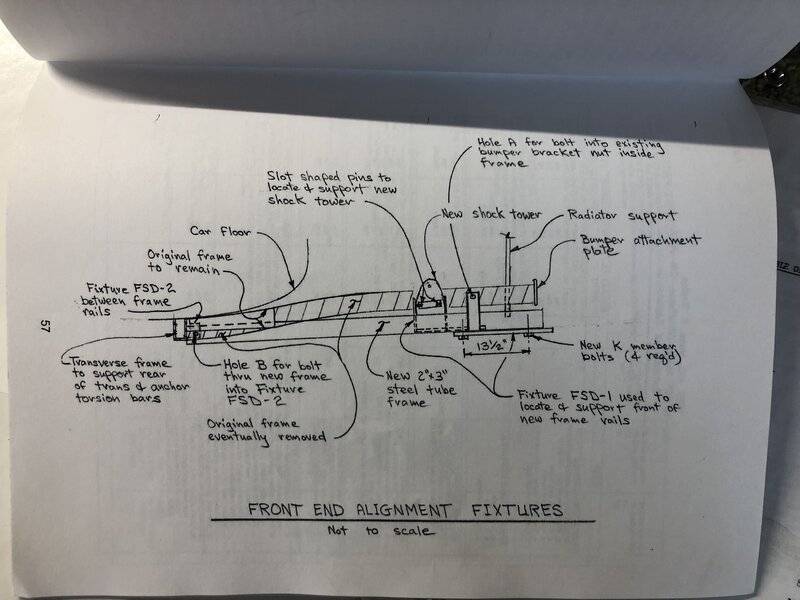 Hole A for bolt into existing
bumper bracket nut inside
frame
Slot shaped pins to
locate & support new
shock tower
New shock tower
Radiator support
Car floor
Bumper attachment
plate
Original frame
to remain
Fixture FSD-2
between frame
rails
57
13½"
New K member
bolts (4 req'd)
Transverse frame
to support rear
of trans & anchor
torsion bars
Hole B for bolt
thru new frame
into Fixture
FSD-2
New 2"x3"
steel tube
frame
Fixture FSD-1 used to
locate & support front of
new frame rails
Original frame
eventually removed
FRONT END ALIGNMENT FIXTURES
Not to scale